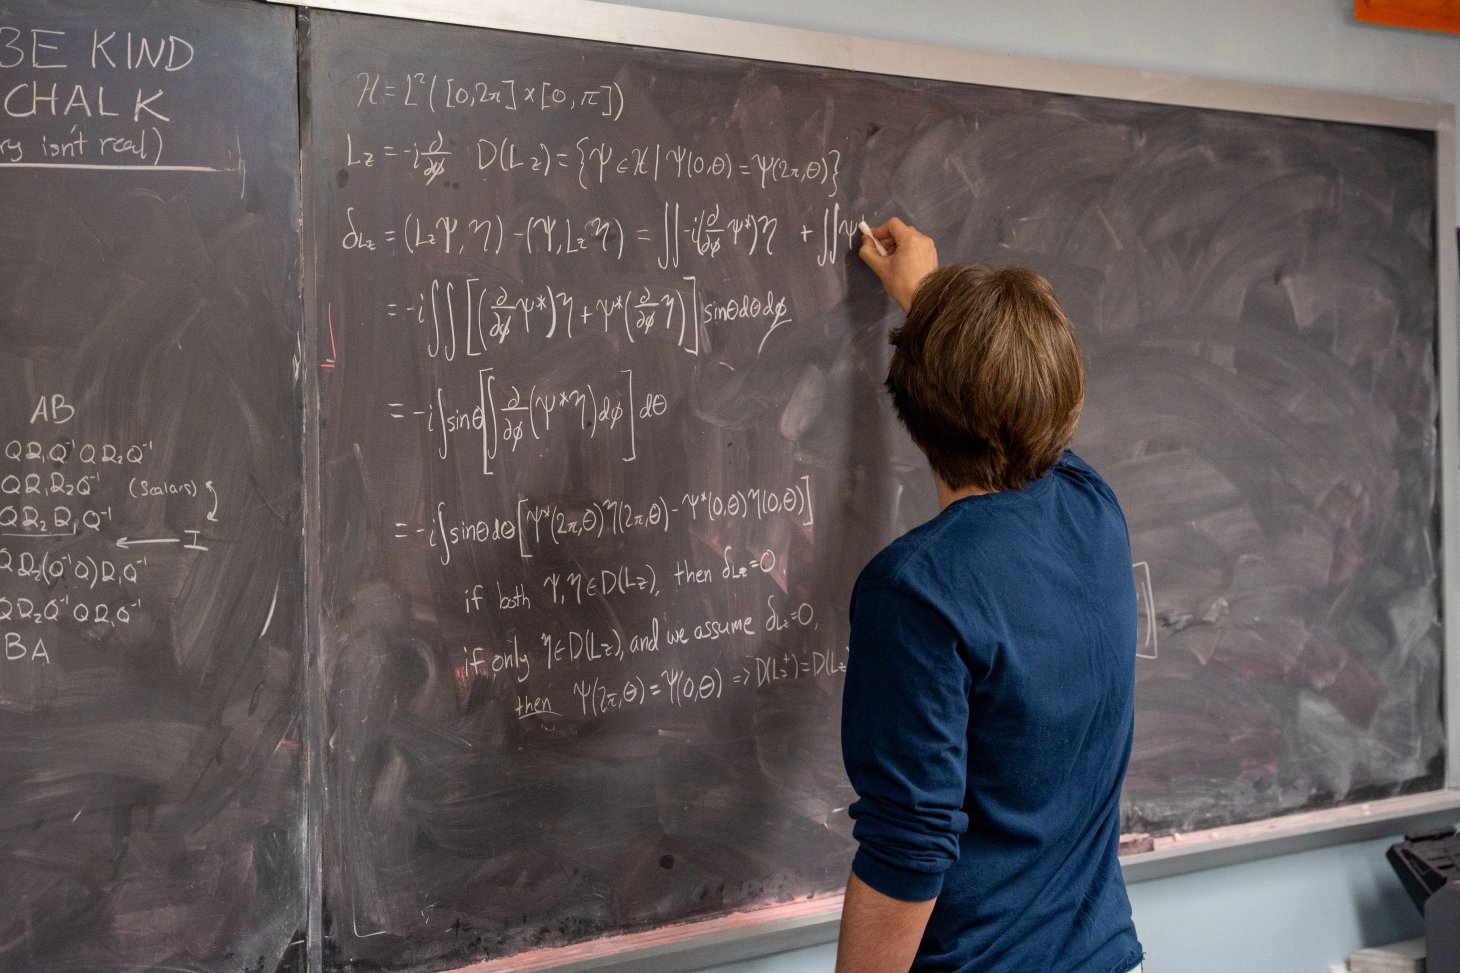 BE KIND
CHALK
isn't real)
AB
QD₁Q⁻¹QD₂Q⁻¹
QD₁D₂Q⁻¹ (Scalars)
QD₂D₁Q⁻¹
I
QD₂(Q⁻¹Q)D₁Q⁻¹
QD₂Q⁻¹QD₁Q⁻¹
BA
ℋ = L²([0,2π]×[0,π])
L_z = -i ∂/∂φ D(L_z) = {Ψ ∈ ℋ | Ψ(0,θ) = Ψ(2π,θ)}
δ_Lz = (L_zΨ, η) - (Ψ, L_zη) = ∫∫ -i(∂/∂φ Ψ*)η + ∫∫Ψ
= -i∫∫[(∂/∂φ Ψ*)η + Ψ*(∂/∂φ η)] sinθdθdφ
= -i∫sinθ[∫ ∂/∂φ (Ψ*η)dφ] dθ
= -i∫sinθdθ[Ψ*(2π,θ)η(2π,θ) - Ψ*(0,θ)η(0,θ)]
if both Ψ,η∈D(L_z), then δ_Lz=0.
if only η∈D(L_z), and we assume δ_Lz=0,
then Ψ(2π,θ) = Ψ(0,θ) => D(L_z⁺) = D(L_z